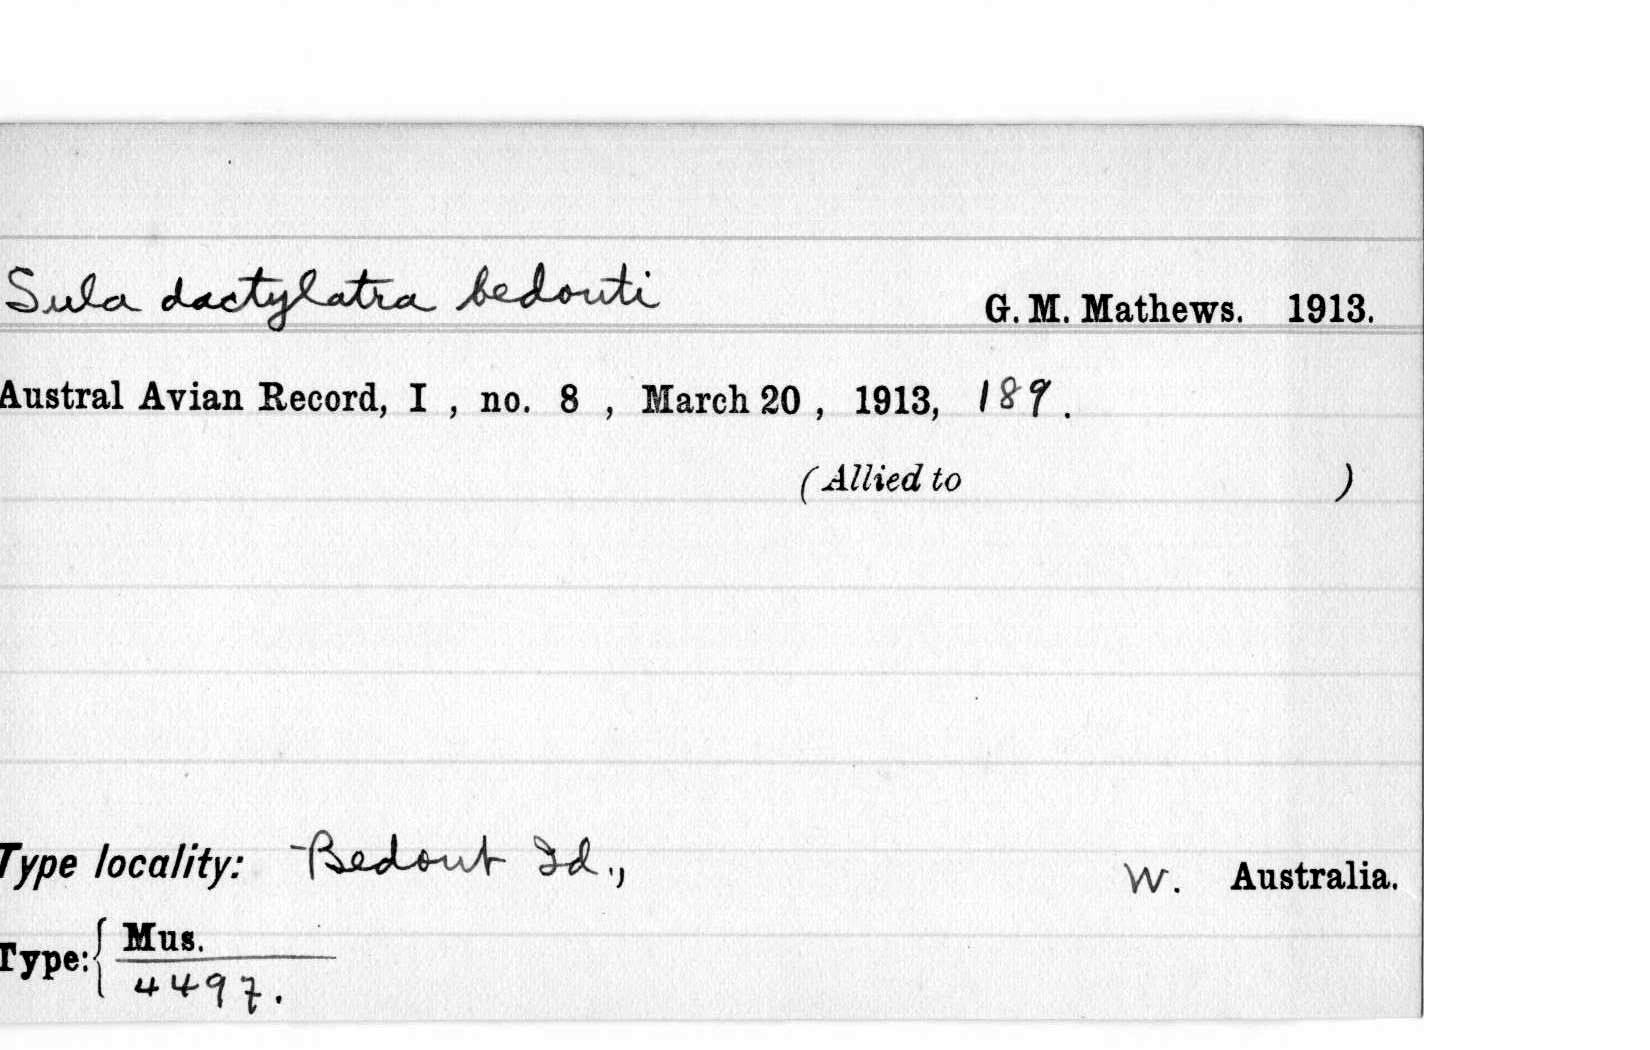 Sula dactylatra bedouti G. M. Mathews. 1913.
Austral Avian Record, I , no. 8 , March 20 , 1913, 189.
(Allied to )
Type locality: Bedout Id., W. Australia.
Type: { Mus.
4497.